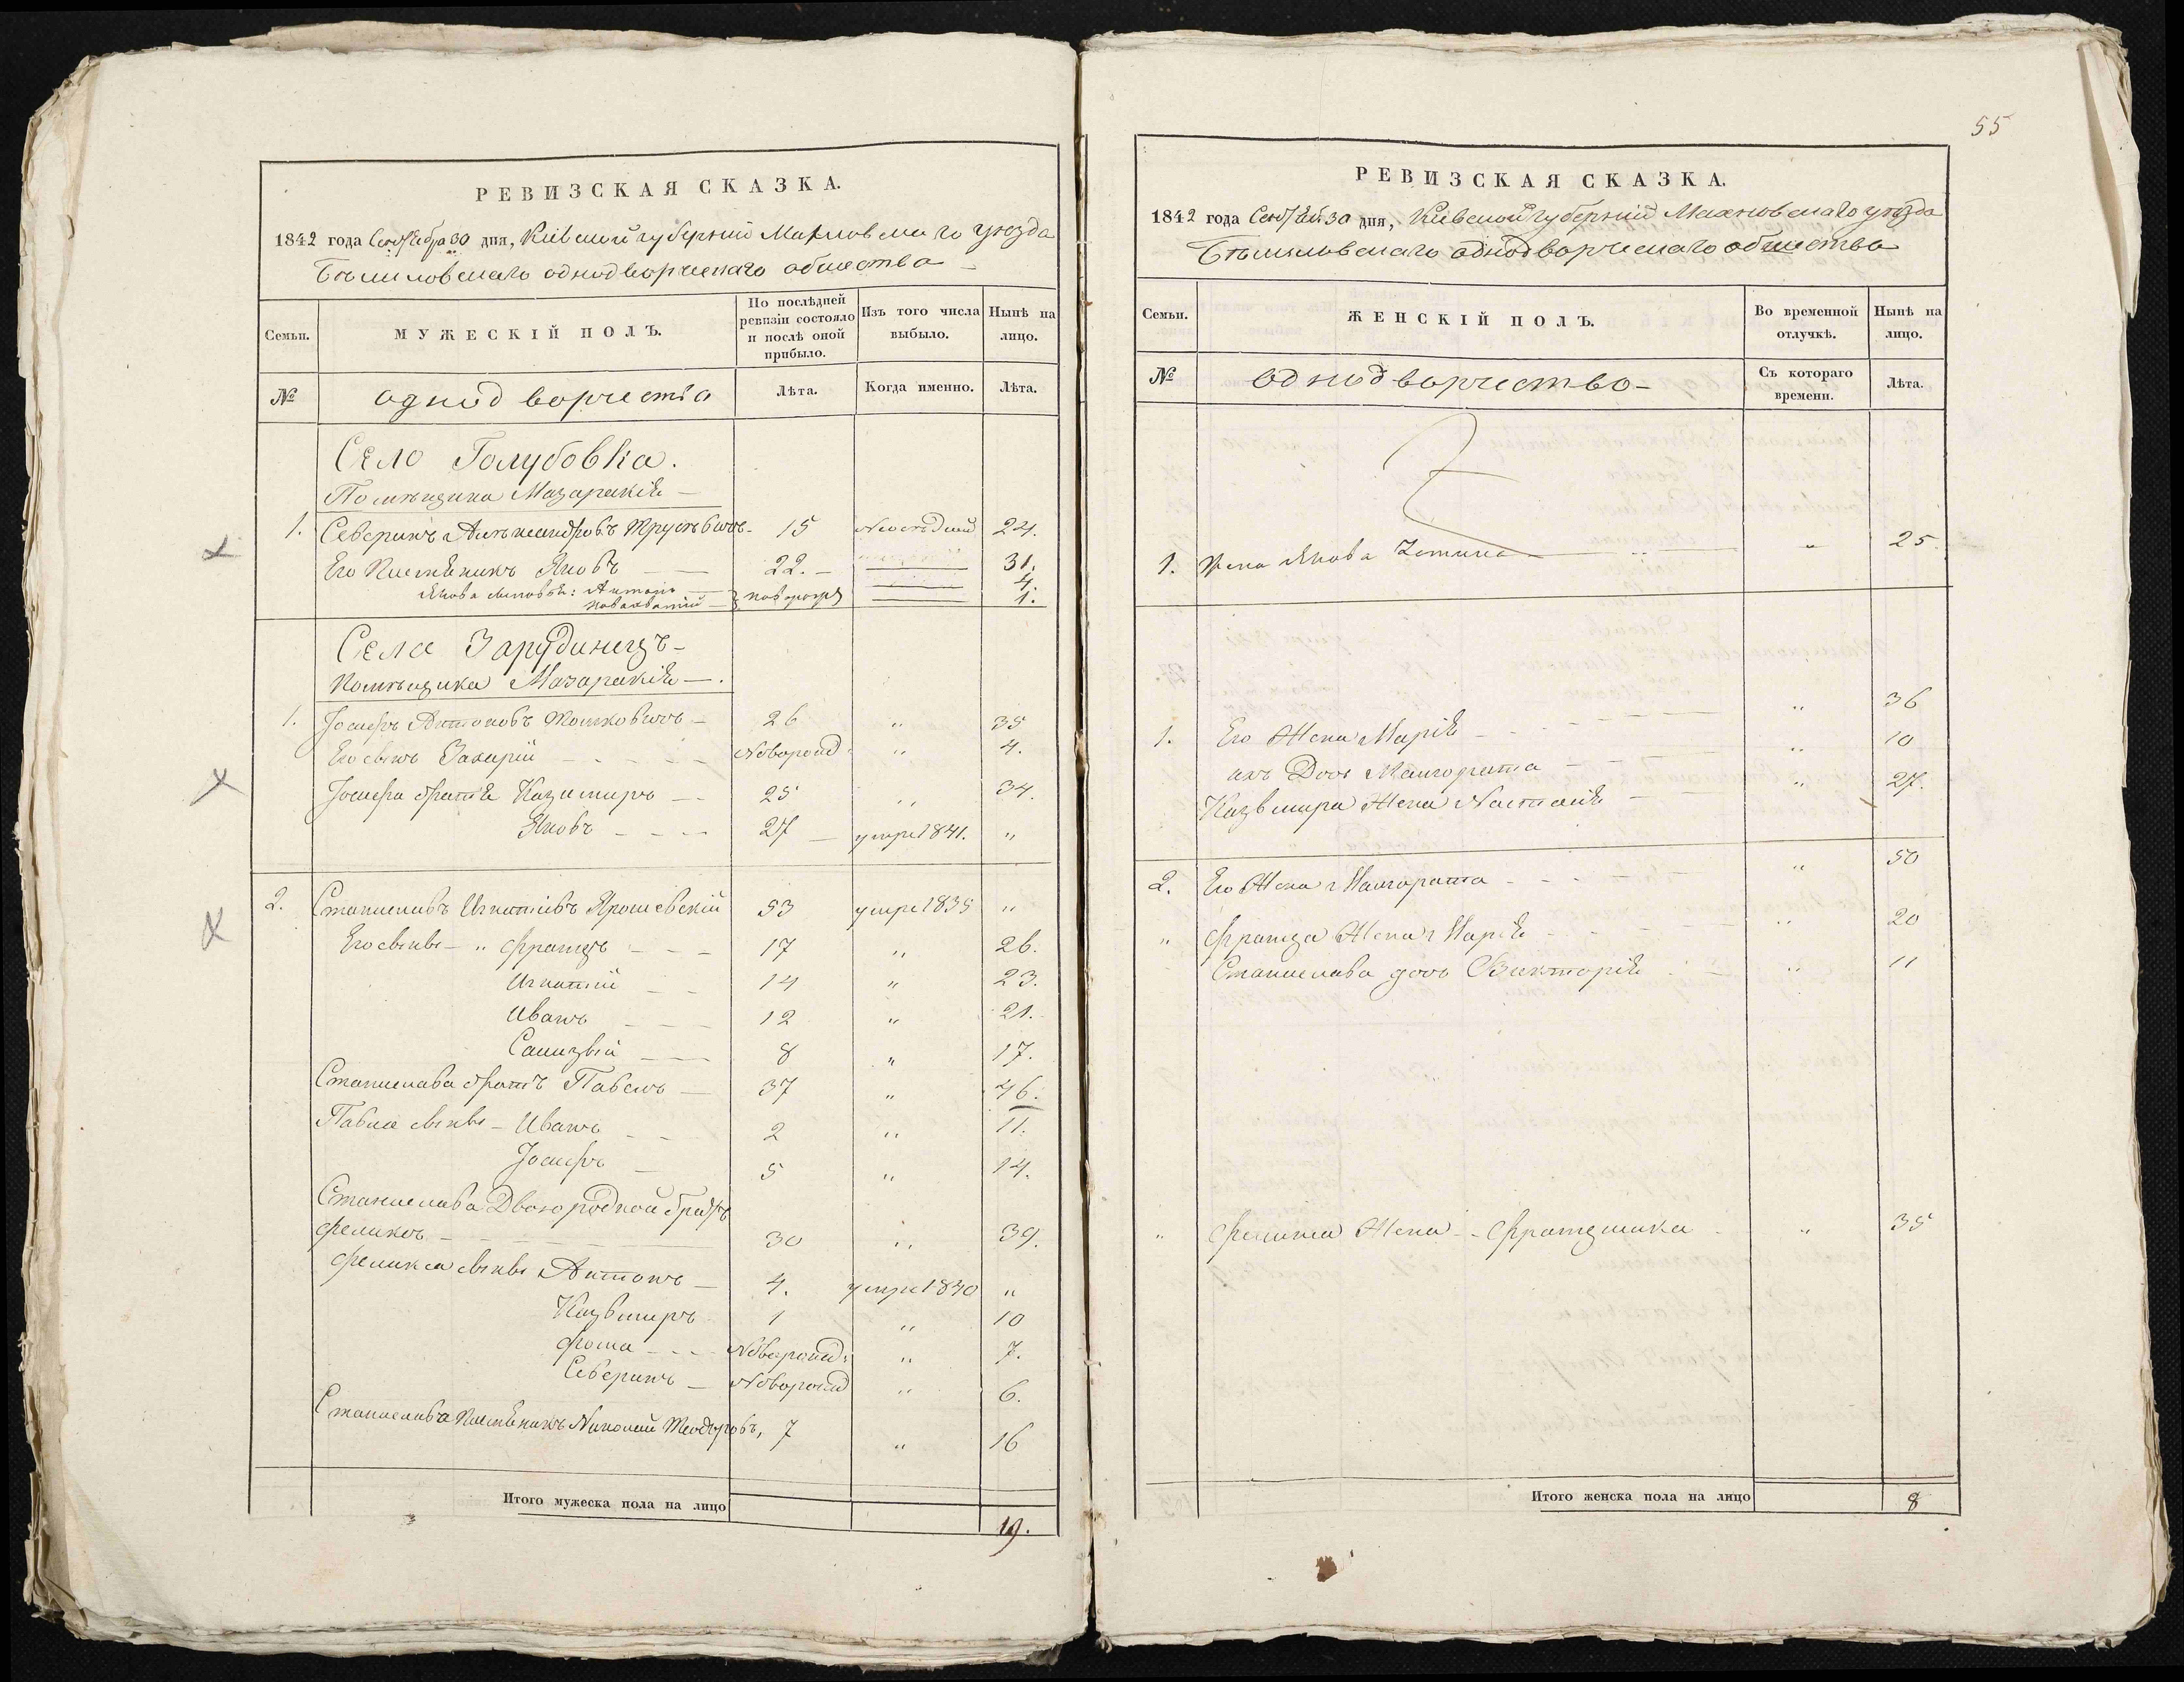 РЕВИЗСКАЯ СКАЗКА.
1842 года Сентебра 30 дня, Кіевской губерніи Махновскаго уезда
однодворческаго общества
Семьи.
МУЖЕСКІЙ ПОЛЪ.
По послѣдней ревизіи состояло и послѣ оной прибыло.
Изъ того числа выбыло.
Нынѣ на лицо.
№
однодворчества
Лѣта.
Когда именно.
Лѣта.
Село Голубовка.
Помѣщика Мазаракія —
1. Северинъ 15 24.
Его Племѣникъ Яковъ — 22. — 31.
Якова сыновья: Антоній — 4.
— новорожд 1.
Села Зарудинецъ —
Помѣщика Мазаракія — .
1. Іосифъ Антоновъ 26 " 35
Его сынъ Захарій — Новорожд " 4.
Іосифа братья Казимиръ — 25 " 34.
Яковъ — 27 — умре 1841. "
2. Станиславъ Игнатіевъ Ярошевскій 53 умре 1835 "
Его сынвя — " Францъ — 17 " 26.
Игнатій — 14 " 23.
Иванъ — 12 " 21.
8 " 17.
Станислава братъ Павелъ — 37 " 46.
Павла сынвя — Иванъ 2 " 11.
Іосифъ — 5 " 14.
Станислава Двоюродной братъ
Феликсъ — 30 " 39.
Феликса сынвя Антонъ — 4. умре 1840 "
Казимиръ 1 " 10
Фома — Новорожд: " 7.
Северинъ — Новорожд " 6.
Станислава Племѣникъ Николай Теодоровъ, 7 " 16
Итого мужеска пола на лицо
19.
55
РЕВИЗСКАЯ СКАЗКА.
1842 года 30 дня, Кіевской губерніи Махновскаго уезда
однодворческаго общества
Семьи.
ЖЕНСКІЙ ПОЛЪ.
Во временной отлучкѣ.
Нынѣ на лицо.
№
однодворчество —
Съ котораго времени.
Лѣта.
1. Жена Якова " 25
1. Его Жена Марія — " 36
ихъ Дочь — " 10
Казимира Жена Настасія — " 27.
2. Его Жена — " 50
" Франца Жена Марія — " 20
Станислава дочь Викторія — " 11
" Феликса Жена — " 35
Итого женска пола на лицо
8